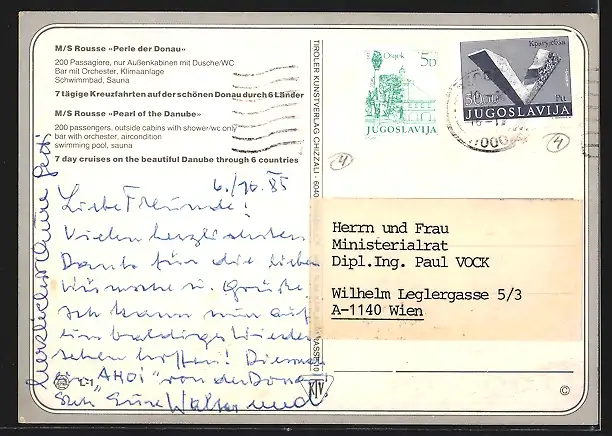 M/S Rousse »Perle der Donau«
200 Passagiere, nur Außenkabinen mit Dusche/WC
Bar mit Orchester, Klimaanlage
Schwimmbad, Sauna
7 tägige Kreuzfahrten auf der schönen Donau durch 6 Länder
M/S Rousse »Pearl of the Danube«
200 passengers, outside cabins with shower/wc only
bar with orchester, aircondition
swimming pool, sauna
7 day cruises on the beautiful Danube through 6 countries
6./10.85
Liebe Freunde!
Vielen herzlichsten
Dank für die lieben
Wünsche u. Grüße.
Ich kann nun auf
ein baldiges Wieder
sehen hoffen! Diesmal
"AHOI" von der Dona
Eure Walter und
Herzlichst Eure
TIROLER KUNSTVERLAG CHIZZALI · 6040
Osijek
5D
JUGOSLAVIJA
Крагујевац
5000
JUGOSLAVIJA
4
4
Herrn und Frau
Ministerialrat
Dipl.Ing. Paul VOCK
Wilhelm Leglergasse 5/3
A-1140 Wien
C-1
KTV
©